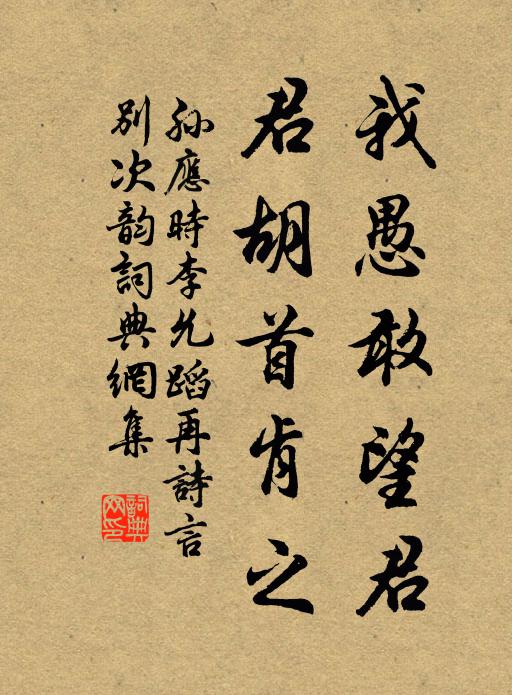 我愚敢望君
君胡首肯之
孙應時李允蹈再詩言
别次韵詞典網集
詞典网印